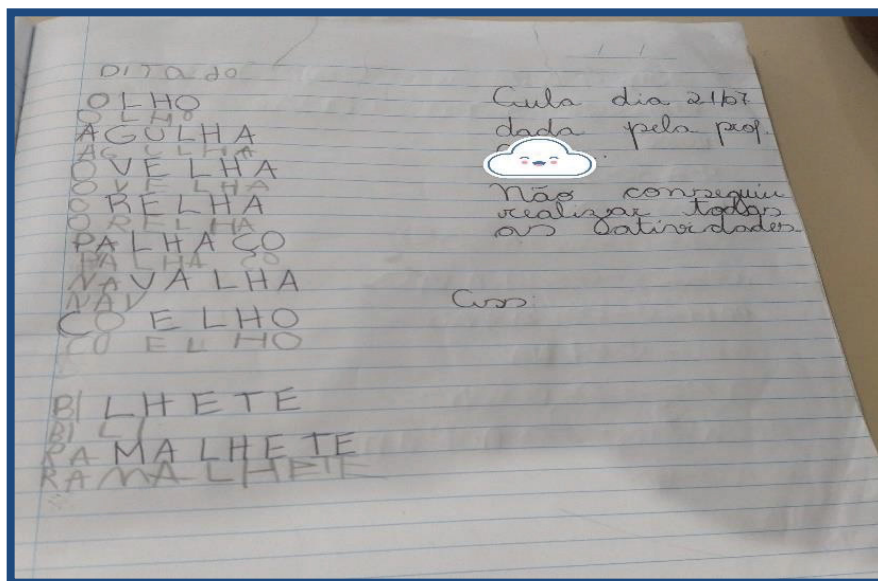 DITADO
OLHO
OLHO
AGULHA
AGULHA
OVELHA
OVELHA
ORELHA
ORELHA
PALHAÇO
PALHAÇO
NAVALHA
NAV
COELHO
COELHO
BILHETE
BIL
RAMALHETE
RAMALHETE
Aula dia 21/07
dada pela prof.
Não conseguiu
realizar todas
as atividades
Ass: